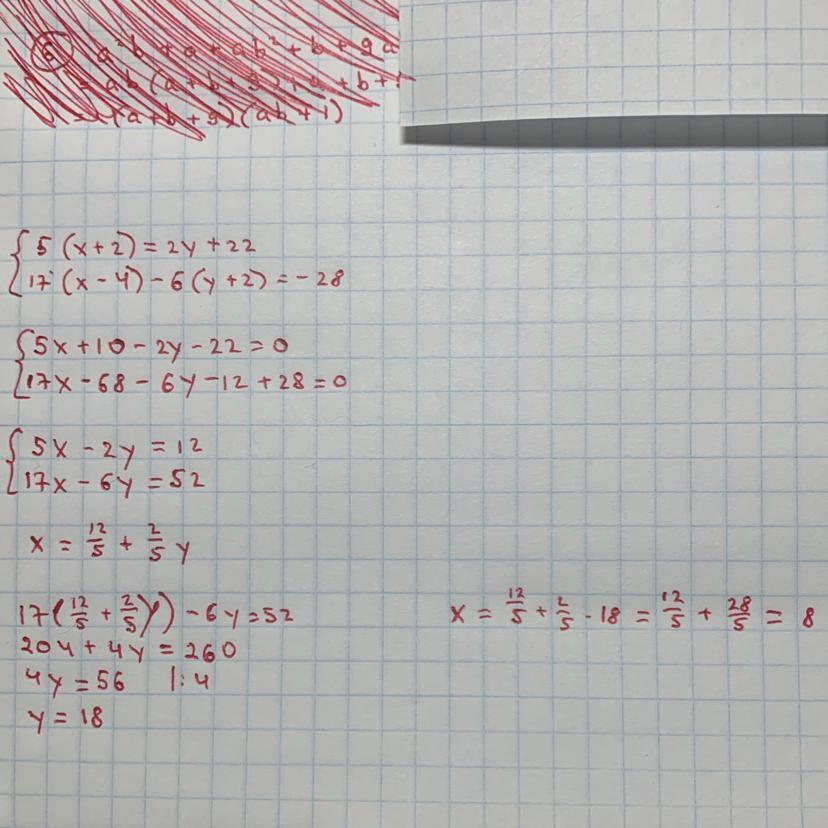 ⑥ a²b + a + ab² + b + 9a
= ab (a + b + 9) + a + b +
= (a + b + 9) (ab + 1)
{ 5 (x + 2) = 2y + 22
17 (x - 4) - 6 (y + 2) = - 28
{ 5x + 10 - 2y - 22 = 0
17x - 68 - 6y - 12 + 28 = 0
{ 5x - 2y = 12
17x - 6y = 52
x = 12/5 + 2/5 y
17 (12/5 + 2/5 y) - 6y = 52
204 + 4y = 260
4y = 56 |: 4
y = 18
x = 12/5 + 2/5 · 18 = 12/5 + 28/5 = 8